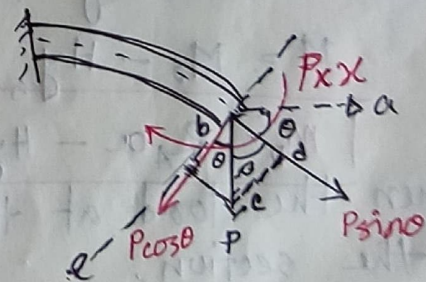 Pxx
a
b
θ
θ
θ
d
c
Pcosθ
P
Psinθ
e